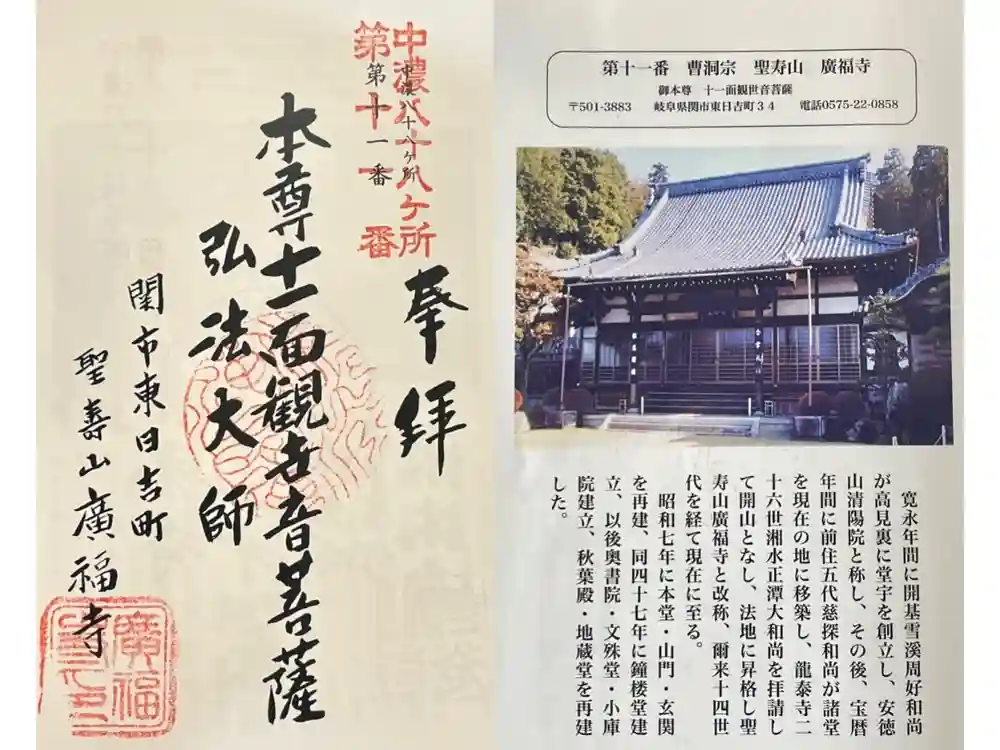 中濃八十八ケ所
第十一番
中濃八十八ヶ所
第十一番
奉拝
本尊十一面観世音菩薩
弘法大師
関市東日吉町
聖壽山廣福寺
廣福
寺印
第十一番　曹洞宗　聖寿山　廣福寺
御本尊　十一面観世音菩薩
〒501-3883　岐阜県関市東日吉町３４　電話0575-22-0858
寛永年間に開基雪溪周好和尚
が高見裏に堂宇を創立し、安徳
山清陽院と称し、その後、宝暦
年間に前住五代慈探和尚が諸堂
を現在の地に移築し、龍泰寺二
十六世湘水正潭大和尚を拝請し
て開山となし、法地に昇格し聖
寿山廣福寺と改称、爾来十四世
代を経て現在に至る。
昭和七年に本堂・山門・玄関
を再建、同四十七年に鐘楼堂建
立、以後奥書院・文殊堂・小庫
院建立、秋葉殿・地蔵堂を再建
した。